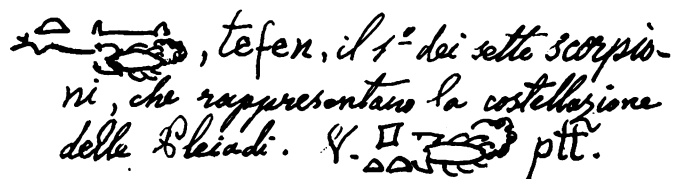 , tefen, il 1º dei sette scorpio-
ni, che rappresentano la costellazione
delle Pleiadi. V. ptt.